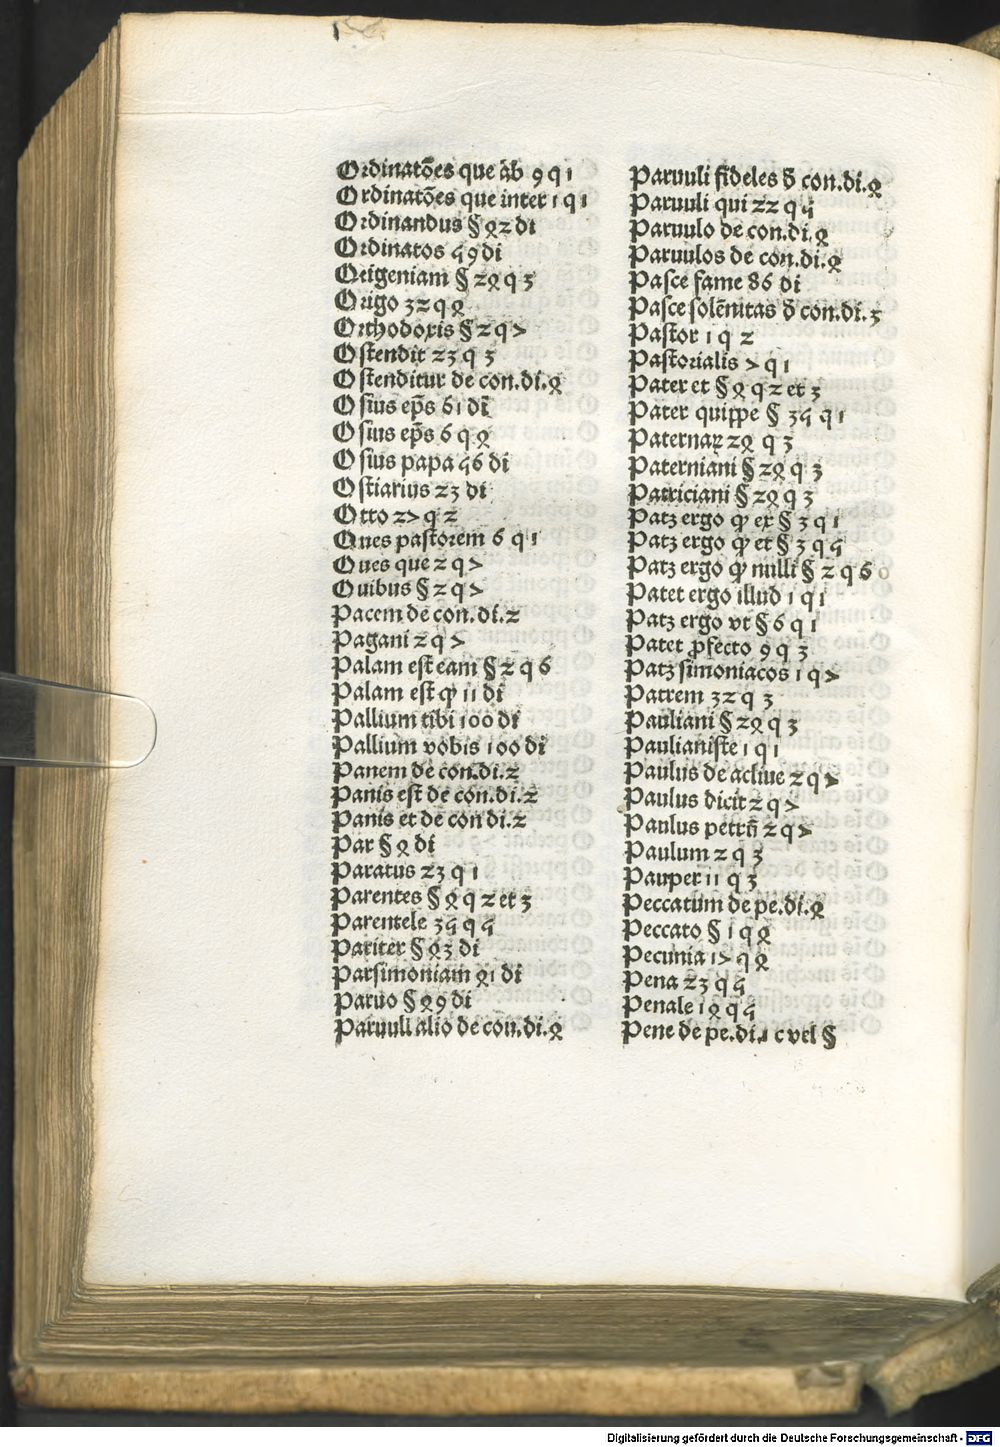 Ordinatões que ab 9 q 1
Ordinatões que inter 1 q 1
Ordinandus § 92 di
Ordinatos 59 di
Origeniani § 24 q 3
Origo 32 q 4
Orthodoxis § 2 q 7
Ostendit 23 q 3
Ostenditur de con.di.4
Osius ep̃s 61 di
Osius ep̃s 6 q 4
Osius papa 56 di
Ostiarius 23 di
Otto 27 q 2
Oues pastorem 6 q 1
Oues que 2 q 7
Ouibus § 2 q 7
Pacem de con.di.2
Pagani 2 q 7
Palam est eam § 2 q 6
Palam est ꝙ 11 di
Pallium tibi 100 di
Pallium vobis 100 di
Panem de con.di.2
Panis est de con.di.2
Panis et de con di.2
Par § 4 di
Paratus 23 q 1
Parentes § 4 q 2 et 3
Parentele 35 q 5
Pariter § 43 di
Parsimoniam 41 di
Paruo § 49 di
Paruuli alio de con.di.4
Paruuli fideles đ con.di.4
Paruuli qui 22 q 5
Paruulo de con.di.4
Paruulos de con.di.4
Pasce fame 86 di
Pasce solẽnitas đ con.di.3
Pastor 1 q 2
Pastorialis 7 q 1
Pater et § 4 q 2 et 3
Pater quippe § 35 q 1
Paternaꝝ 24 q 3
Paterniani § 24 q 3
Patriciani § 24 q 3
Patꝫ ergo ꝙ ex § 3 q 1
Patꝫ ergo ꝙ et § 3 q 5
Patꝫ ergo ꝙ nulli § 2 q 6
Patet ergo illud 1 q 1
Patꝫ ergo vt § 6 q 1
Patet ꝓfecto 9 q 3
Patꝫ simoniacos 1 q 7
Patrem 32 q 3
Pauliani § 24 q 3
Paulianiste 1 q 1
Paulus de acliue 2 q 7
Paulus dicit 2 q 7
Paulus petrũ 2 q 7
Paulum 2 q 3
Pauper 11 q 3
Peccatum de pe.di.4
Peccato § 1 q 4
Pecunia 17 q 4
Pena 23 q 5
Penale 14 q 5
Pene de pe.di.1 c vel §
Digitalisierung gefördert durch die Deutsche Forschungsgemeinschaft - DFG